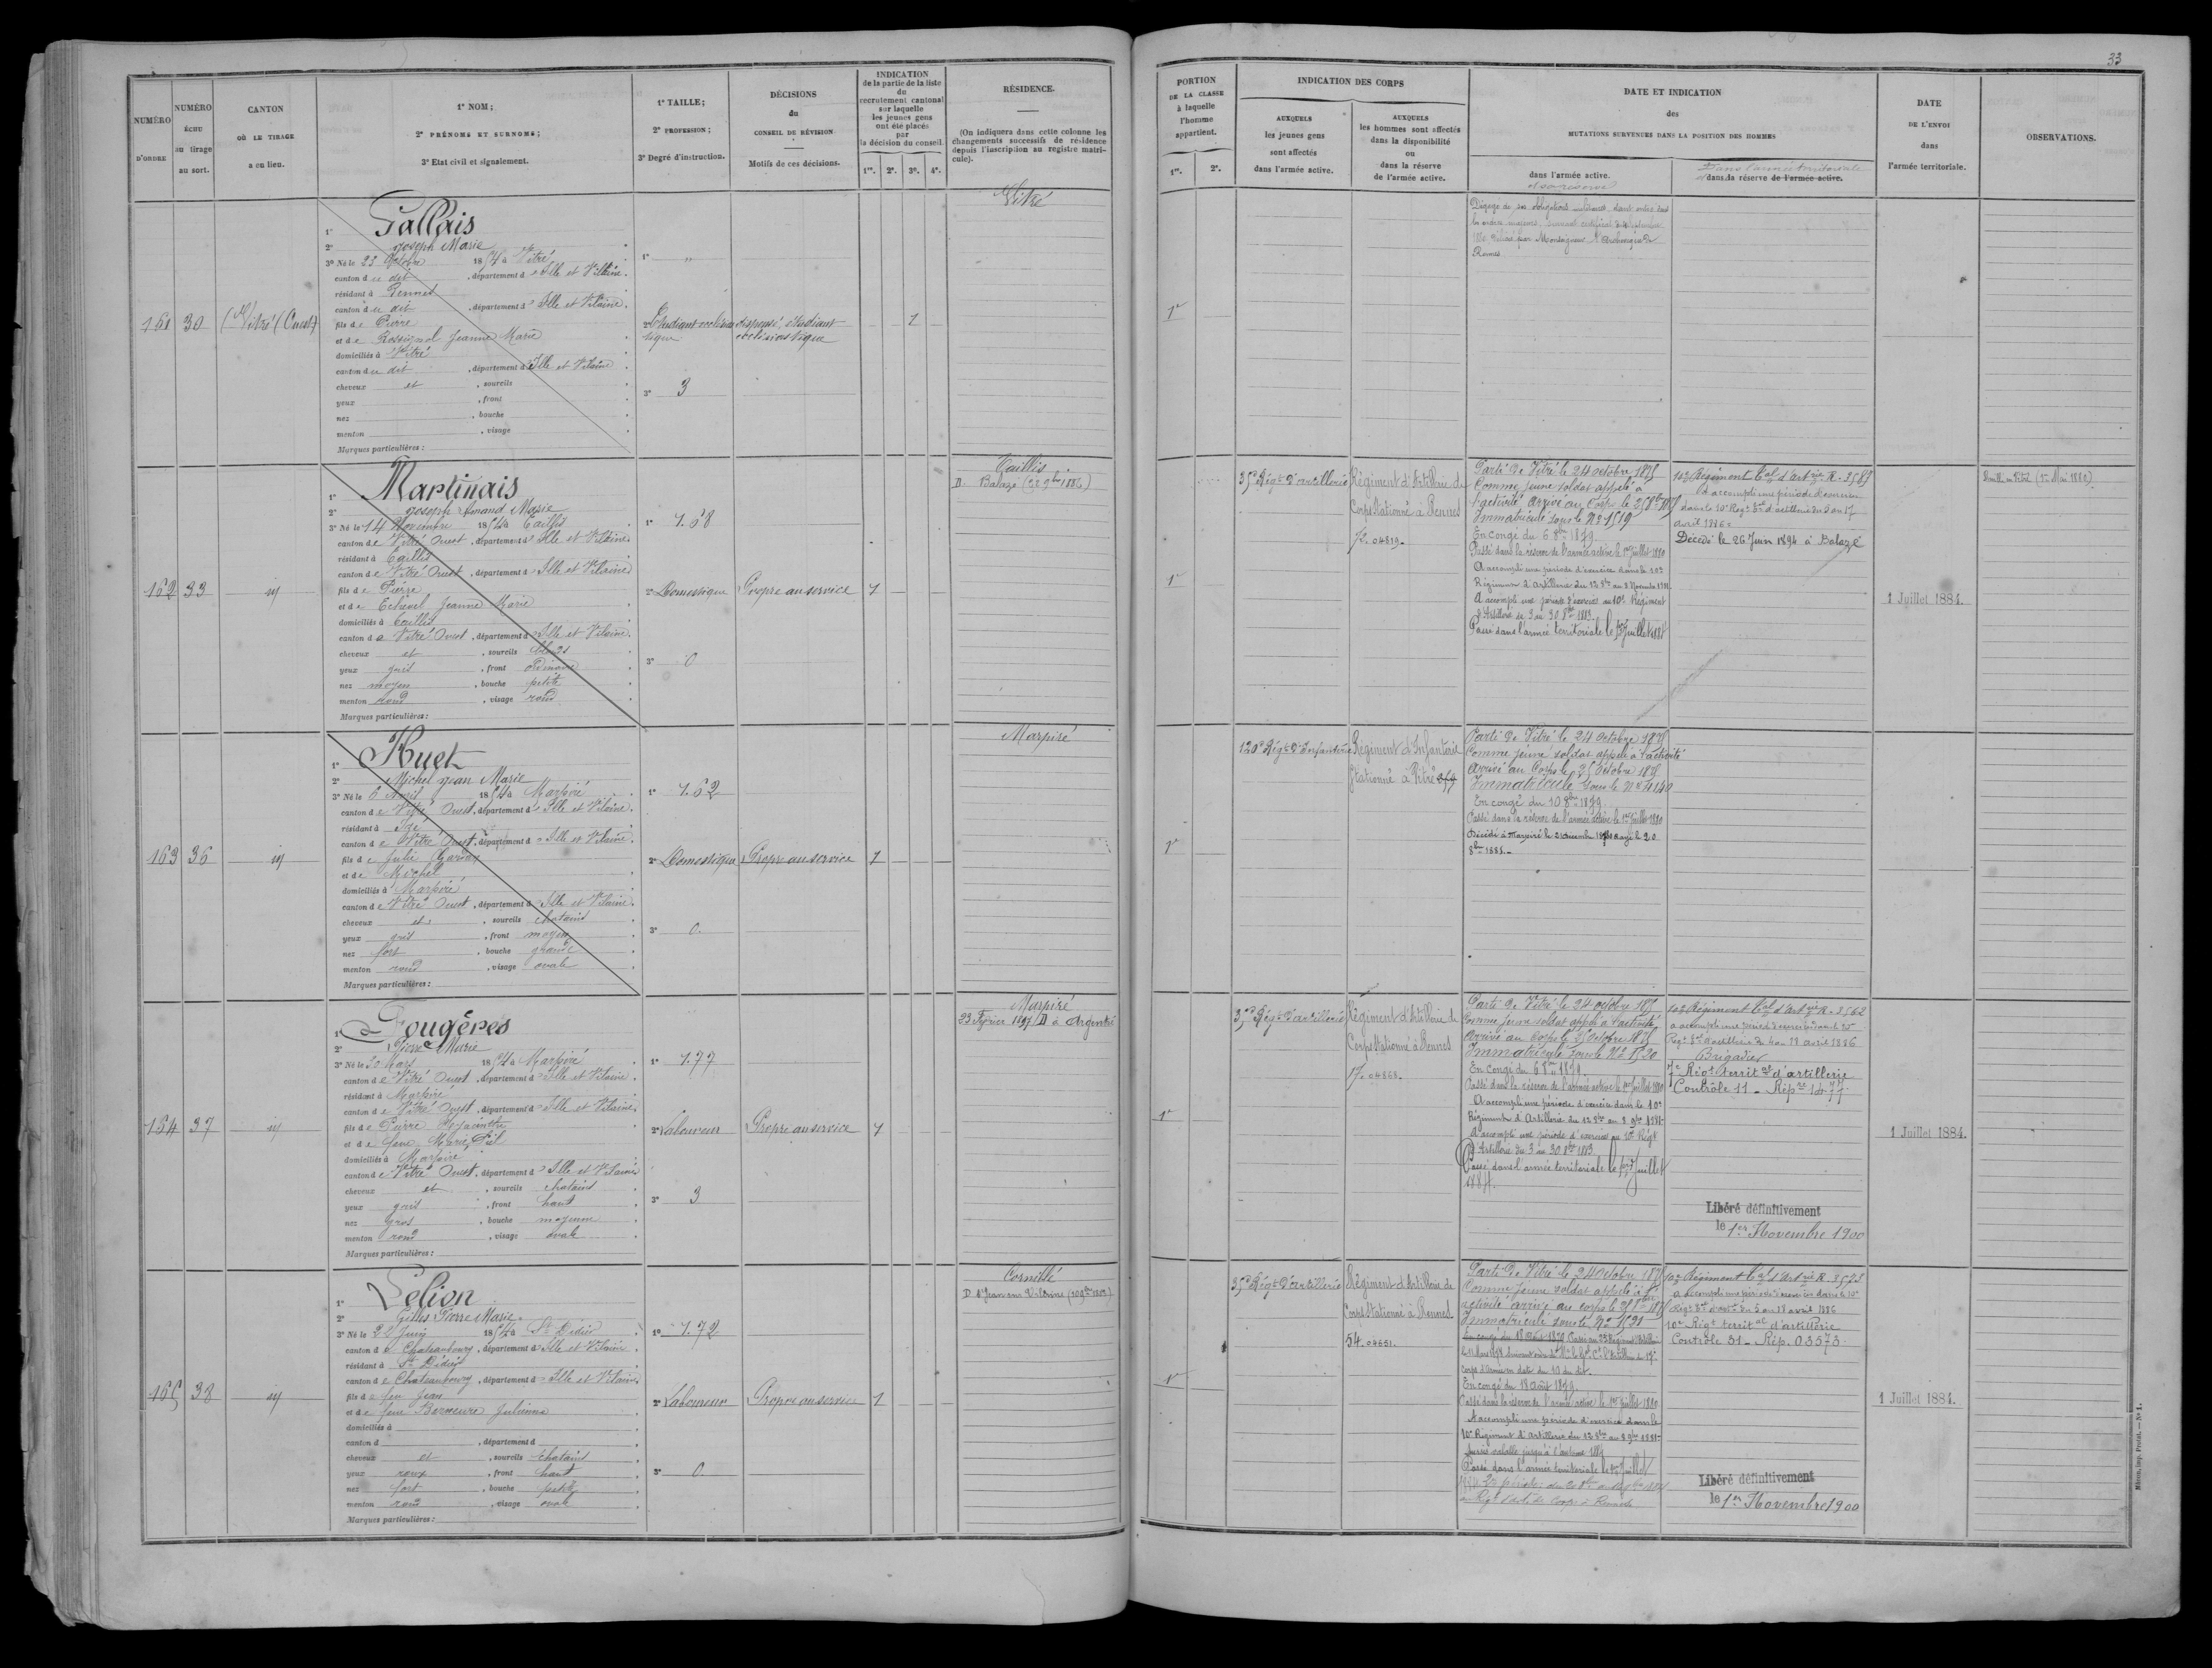 33
NUMÉRO D'ORDRE
NUMÉRO ÉCHU au tirage au sort.
CANTON OÙ LE TIRAGE a eu lieu.
1° NOM;
2° PRÉNOMS ET SURNOMS;
3° Etat civil et signalement.
1° TAILLE;
2° PROFESSION;
3° Degré d'instruction.
DÉCISIONS du CONSEIL DE RÉVISION
Motifs de ces décisions.
INDICATION de la partie de la liste de recrutement cantonal sur laquelle les jeunes gens ont été placés par la décision du conseil.
1re. 2e. 3e. 4e.
RÉSIDENCE.
(On indiquera dans cette colonne les changements successifs de résidence depuis l'inscription au registre matricule).
PORTION DE LA CLASSE à laquelle l'homme appartient.
1re. 2e.
INDICATION DES CORPS
AUXQUELS les jeunes gens sont affectés dans l'armée active.
AUXQUELS les hommes sont affectés dans la disponibilité ou dans la réserve de l'armée active.
DATE ET INDICATION des MUTATIONS SURVENUES DANS LA POSITION DES HOMMES
dans l'armée active.
et sa réserve
Dans l'armée territoriale
et dans la réserve de l'armée active.
DATE DE L'ENVOI dans l'armée territoriale.
OBSERVATIONS.
161 30 Vitré (Ouest)
1° Gallais
2° Joseph Marie
3° Né le 23 Octobre 1854 à Vitré
canton du dit, département d'Ille et Vilaine.
résidant à Rennes
canton du dit, département d'Ille et Vilaine.
fils de Pierre
et de Rossignol Jeanne Marie
domiciliés à Vitré
canton du dit, département d'Ille et Vilaine
cheveux et, sourcils
yeux, front
nez, bouche
menton, visage
Marques particulières:
1° "
2° Etudiant ecclésiastique
3° 3
dispensé, étudiant
ecclésiastique
1
Vitré
1re
Dégagé de ses obligations militaires, étant entré dans
les ordres majeurs, suivant certificat
délivré par Monseigneur l'Archevêque de
Rennes
162 33 id
1° Martinais
2° Joseph Armand Marie
3° Né le 14 Novembre 1854 à Taillis
canton de Vitré Ouest, département d'Ille et Vilaine
résidant à Taillis
canton de Vitré Ouest, département d'Ille et Vilaine
fils de Pierre
et de Jeanne Marie
domiciliés à Taillis
canton de Vitré Ouest, département d'Ille et Vilaine.
cheveux et, sourcils blonds
yeux gris, front ordinaire
nez moyen, bouche petite
menton rond, visage rond
Marques particulières:
1° 1.68
2° Domestique
3° 0
Propre au service
1
Taillis
D. Balazé (22 9bre 1886)
1re
35e Régt d'artillerie
Régiment d'Artillerie de
Corps Stationné à Rennes
72.04819.
Parti de Vitré le 24 octobre 1875
Comme jeune soldat appelé à
l'activité Arrivé au Corps le 25 8bre 1875
Immatriculé sous le No 1519
En congé du 6 8bre 1879.
Passé dans la réserve de l'armée active le 1er Juillet 1880
A accompli une période d'exercice dans le 10e
Régiment d'Artillerie du 12 8bre au 8 Novembre 1881
A accompli une période d'exercices au 10e Régiment
d'Artillerie du 3 au 30 8bre 1883.
Passé dans l'armée territoriale le 1er Juillet 1884
10e Régiment Tal d'Artrie R. 3587
A accompli une période d'exercices
dans le 10e Régt Tal d'artillerie du 5 au 17
avril 1886
Décédé le 26 Juin 1894 à Balazé
1 Juillet 1884.
163 36 id
1° Huet
2° Michel Jean Marie
3° Né le 6 Avril 1854 à Marpiré
canton de Vitré Ouest, département d'Ille et Vilaine.
résidant à Izé
canton de Vitré Ouest, département d'Ille et Vilaine.
fils de Julie
et de Michel
domiciliés à Marpiré
canton de Vitré Ouest, département d'Ille et Vilaine.
cheveux et, sourcils chatains
yeux gris, front moyen
nez fort, bouche grande
menton rond, visage ovale
Marques particulières:
1° 1.62
2° Domestique
3° 0.
Propre au service
1
Marpiré
1re
120e Régt d'Infanterie
Régiment d'Infanterie
Stationné à Vitré
Parti de Vitré le 24 octobre 1875
Comme jeune soldat appelé à l'activité
Arrivé au Corps le 25 Octobre 1875
Immatriculé sous le No 4140
En congé du 10 8bre 1879
Passé dans la réserve de l'armée active le 1er Juillet 1880
Décédé à Marpiré le 2 décembre Rayé le 20
8bre 1881.
164 37 id
1° Fougères
2° Pierre Marie
3° Né le 30 Mars 1854 à Marpiré
canton de Vitré Ouest, département d'Ille et Vilaine.
résidant à Marpiré
canton de Vitré Ouest, département d'Ille et Vilaine.
fils de Pierre Hyacinthe
et de feue Marie
domiciliés à Marpiré
canton de Vitré Ouest, département d'Ille et Vilaine
cheveux et, sourcils chatains
yeux gris, front haut
nez gros, bouche moyenne
menton rond, visage ovale
Marques particulières:
1° 1.77
2° Laboureur
3° 3
Propre au service
1
Marpiré
23 Février 1897 D à Argentré
1re
35e Régt d'artillerie
Régiment d'Artillerie de
Corps Stationné à Rennes
17.04868.
Parti de Vitré le 24 octobre 1875
Comme jeune soldat appelé à l'activité
Arrivé au Corps le 25 Octobre 1875
Immatriculé sous le No 1520
En congé du 6 8bre 1879.
Passé dans la réserve de l'armée active le 1er Juillet 1880
A accompli une période d'exercice dans le 10e
Régiment d'Artillerie du 12 8bre au 8 9bre 1881
A accompli une période d'exercices au 10e Régt
d'Artillerie du 3 au 30 8bre 1883
Passé dans l'armée territoriale le 1er Juillet
1884.
10e Régiment Tal d'Artrie R. 3562
A accompli une période d'exercices dans le 10e
Régt Tal d'artillerie du 4 au 18 avril 1886
Brigadier
7e Régt territal d'artillerie
Contrôle 11 - Répre 1477
Libéré définitivement
le 1er Novembre 1900
1 Juillet 1884.
165 38 id
1° Lelion
2° Gilles Pierre Marie
3° Né le 22 Juin 1854 à St Didier
canton de Chateaubourg, département d'Ille et Vilaine.
résidant à St Didier
canton de Chateaubourg, département d'Ille et Vilaine.
fils de feu Jean
et de feue Julienne
domiciliés à
canton d, département d
cheveux et, sourcils chatains
yeux roux, front haut
nez fort, bouche petite
menton rond, visage ovale
Marques particulières:
1° 1.72
2° Laboureur
3° 0
Propre au service
1
Cornillé
D St Jean sur Vilaine
1re
35e Régt d'artillerie
Régiment d'Artillerie de
Corps Stationné à Rennes
54.04651.
Parti de Vitré le 24 Octobre 1875
Comme jeune soldat appelé à l'
activité arrivé au corps le 25 8bre 1875
Immatriculé sous le No 1521
En congé du 18 août 1879
corps d'armée en date du 10 du dit.
En congé du 18 août 1879.
Passé dans la réserve de l'armée active le 1er Juillet 1880
A accompli une période d'exercice dans le
10e Régiment d'Artillerie du 12 8bre au 8 9bre 1881
Passé dans l'armée territoriale le 1er Juillet
1884
10e Régiment Tal d'Artrie R. 3573
A accompli une période d'exercices dans le 10e
Régt Tal d'artrie du 5 au 18 avril 1886
10e Régt territal d'artillerie
Contrôle 31 - Rép. 03573
Libéré définitivement
le 1er Novembre 1900
1 Juillet 1884.